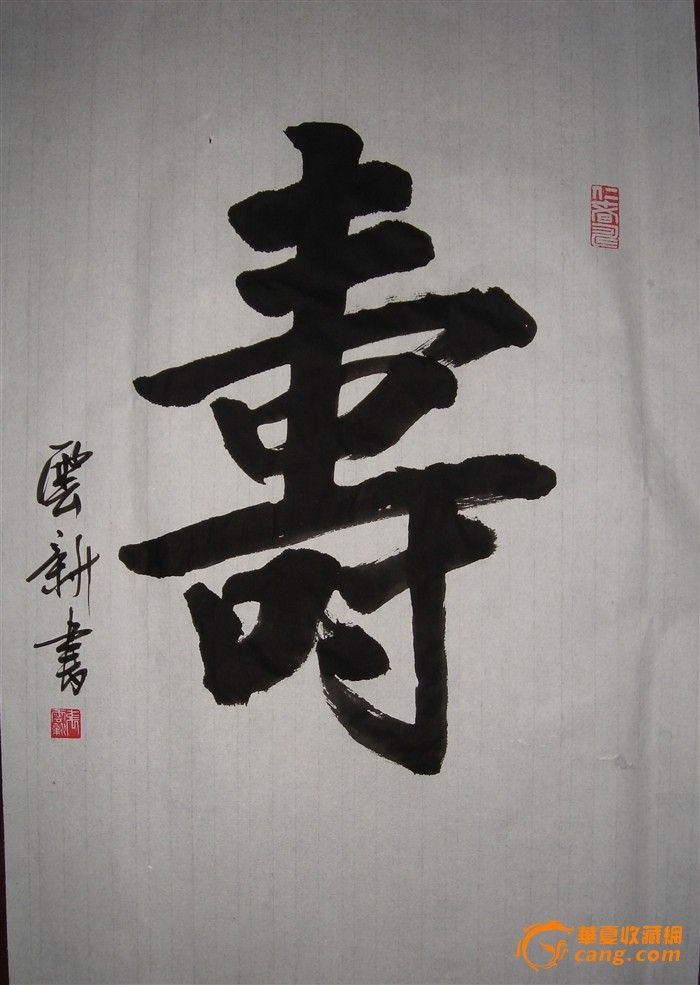 壽
雲新書
華夏收藏網
cang.com